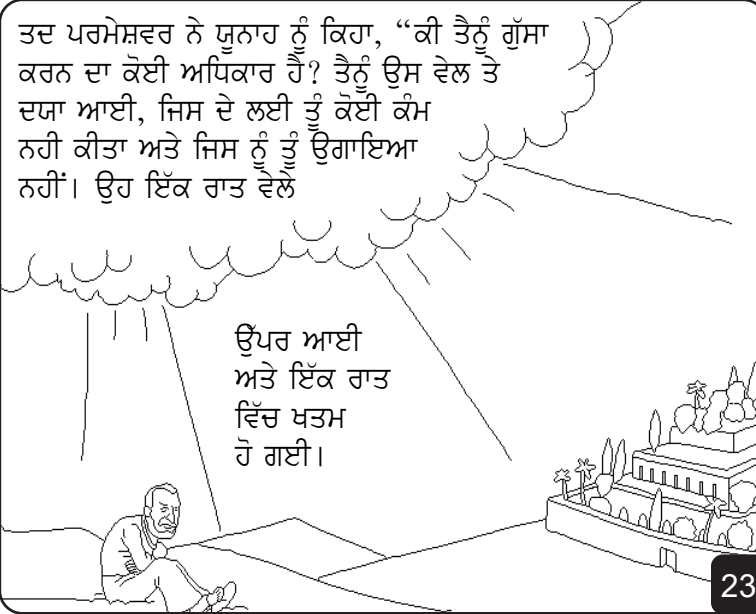 ਤਦ ਪਰਮੇਸ਼ਵਰ ਨੇ ਯੂਨਾਹ ਨੂੰ ਕਿਹਾ, “ਕੀ ਤੈਨੂੰ ਗੁੱਸਾ
ਕਰਨ ਦਾ ਕੋਈ ਅਧਿਕਾਰ ਹੈ? ਤੈਨੂੰ ਉਸ ਵੇਲ ਤੇ
ਦਯਾ ਆਈ, ਜਿਸ ਦੇ ਲਈ ਤੂੰ ਕੋਈ ਕੰਮ
ਨਹੀ ਕੀਤਾ ਅਤੇ ਜਿਸ ਨੂੰ ਤੂੰ ਉਗਾਇਆ
ਨਹੀਂ। ਉਹ ਇੱਕ ਰਾਤ ਵੇਲੇ
ਉੱਪਰ ਆਈ
ਅਤੇ ਇੱਕ ਰਾਤ
ਵਿੱਚ ਖਤਮ
ਹੋ ਗਈ।
23